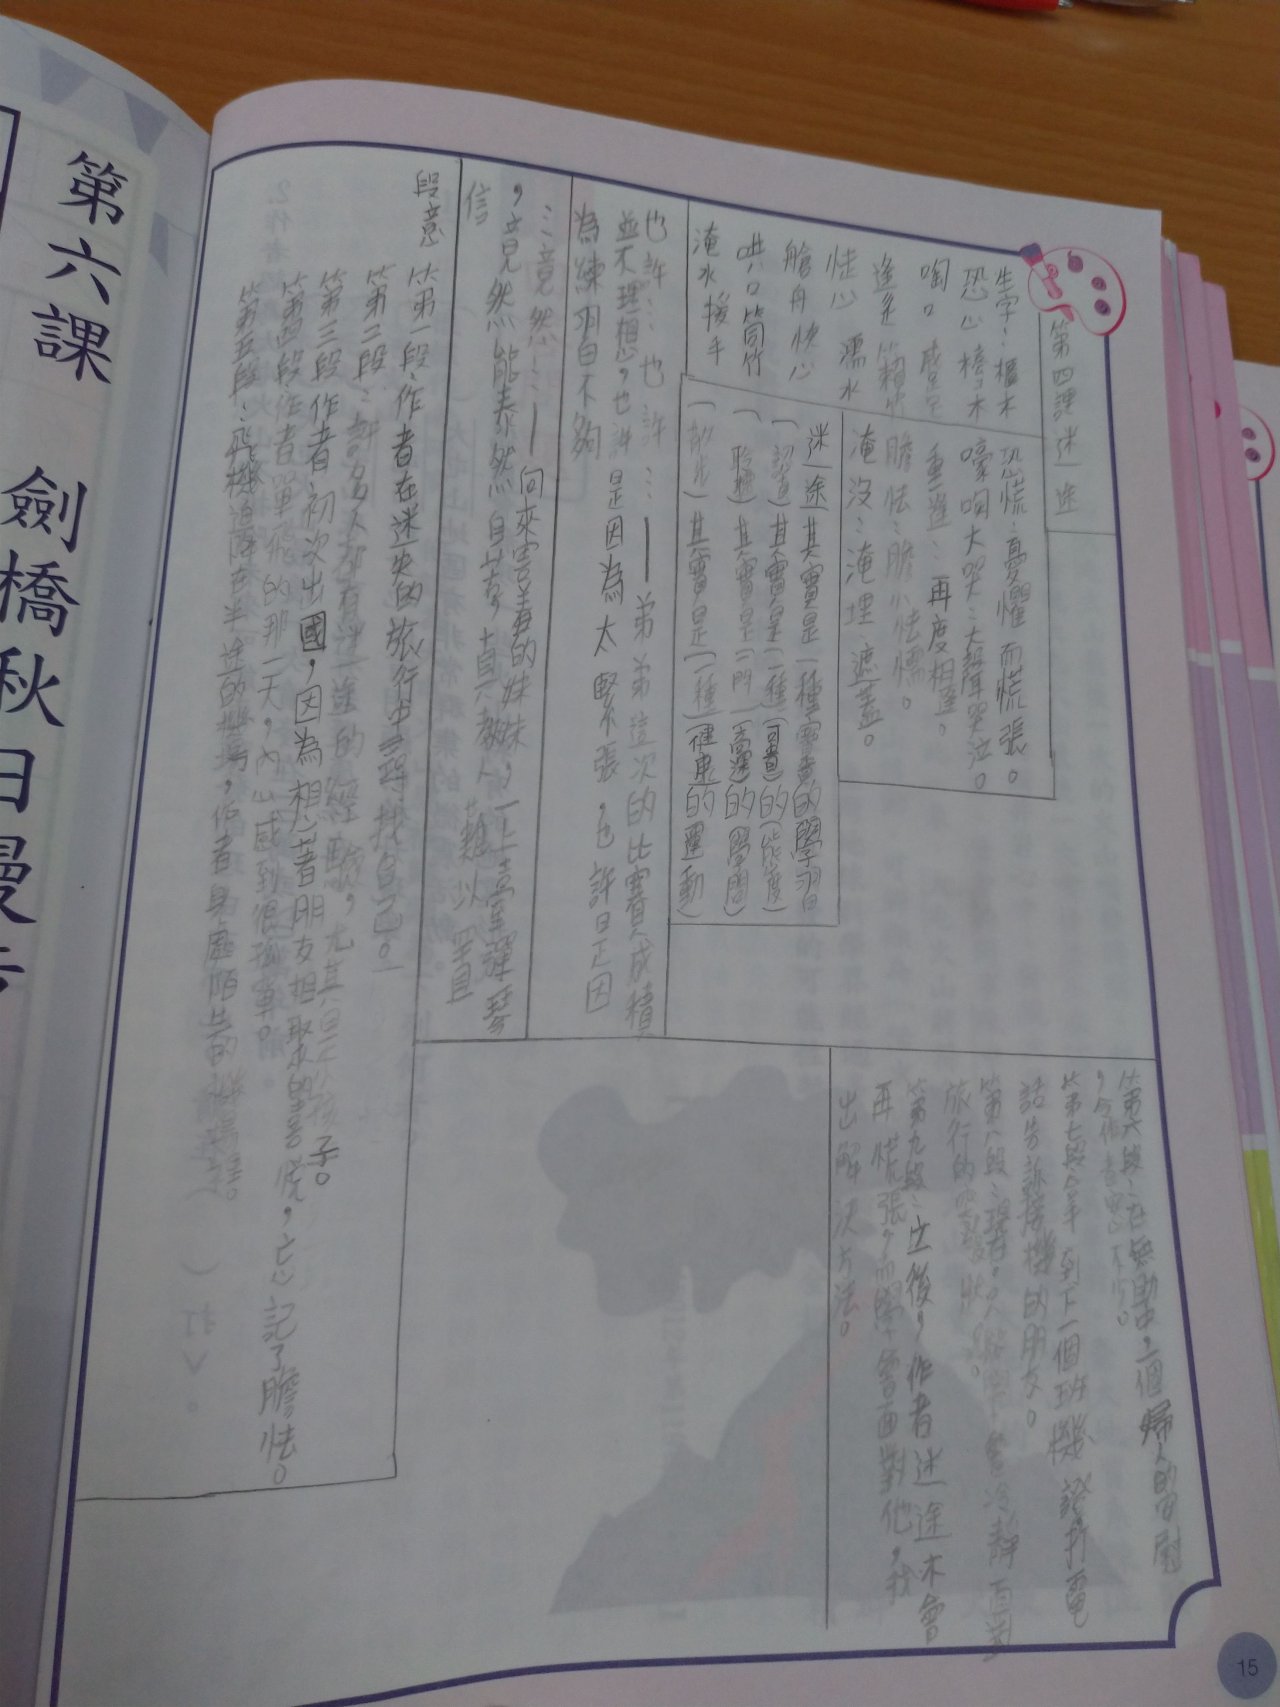 第四課迷途
生字：樞木
恐心 椿木
啕口 感
逢辵 籟竹
怯心 濡水
艙舟 快心
哄口 筒竹
淹水 援手
恐慌：憂懼而慌張。
嚎啕大哭：大聲哭泣。
重逢：再度相逢。
膽怯：膽小怯懦。
淹沒：淹埋遮蓋。
迷途其實是一種寶貴的學習
(認真)其實是(一種)(可貴)的(態度)
(聆聽)其實是(一門)(高深)的(學問)
(散步)其實是(一種)(健康)的(運動)
也許…也許…——弟弟這次的比賽成積
並不理想，也許是因為太緊張，也許是因
為練習不夠
…竟然…——向來害羞的妹妹，一上臺彈琴
，竟然能泰然自若，真教人難以置
信
段意
第一段：作者在迷失的旅行中尋找自己。
第二段：許多人都有迷途的經驗，尤其是小孩子。
第三段：作者初次出國，因為想著朋友相聚的喜悅，忘記了膽怯。
第四段：作者單飛的那一天，內心感到很孤單。
第五段：飛機迫降在半途的機場，作者身處陌生的機場
第六段：在無助中，一個婦人的安慰
，令作者安心不少。
第七段：拿到下一個班機證，打電
話告訴接機的朋友。
第八段：冷靜面對
旅行的突發狀況。
第九段：出後，作者迷途不會
再慌張，而學會面對他，找
出解決方法。
第六課 劍橋秋日漫步
15